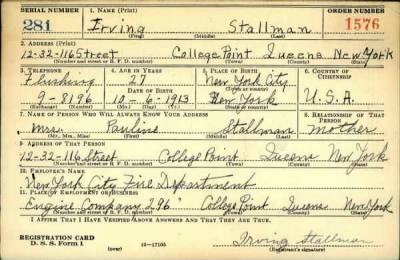 SERIAL NUMBER 1. NAME (Print) ORDER NUMBER
281 Irving Stallman 1576
(First) (Middle) (Last)
2. ADDRESS (Print)
12-32-116 Street College Point Queens New York
(Number and street or R. F. D. number) (Town) (County) (State)
3. TELEPHONE 4. AGE IN YEARS 5. PLACE OF BIRTH 6. COUNTRY OF CITIZENSHIP
Flushing 27 New York City
DATE OF BIRTH (Town or county)
9-8196 10-6-1913 New York U.S.A.
(Exchange) (Number) (Mo.) (Day) (Yr.) (State or country)
7. NAME OF PERSON WHO WILL ALWAYS KNOW YOUR ADDRESS 8. RELATIONSHIP OF THAT PERSON
Mrs. Pauline Stallman mother
(Mr., Mrs., Miss) (First) (Middle) (Last)
9. ADDRESS OF THAT PERSON
12-32-116 Street College Point Queens New York
(Number and street or R. F. D. number) (Town) (County) (State)
10. EMPLOYER'S NAME
New York City Fire Department
11. PLACE OF EMPLOYMENT OR BUSINESS
Engine Company 296 College Point Queens New York
(Number and street or R. F. D. number) (Town) (County) (State)
I AFFIRM THAT I HAVE VERIFIED ABOVE ANSWERS AND THAT THEY ARE TRUE.
REGISTRATION CARD
D. S. S. Form 1 (over) 16-17105 Irving Stallman
(Registrant's signature)